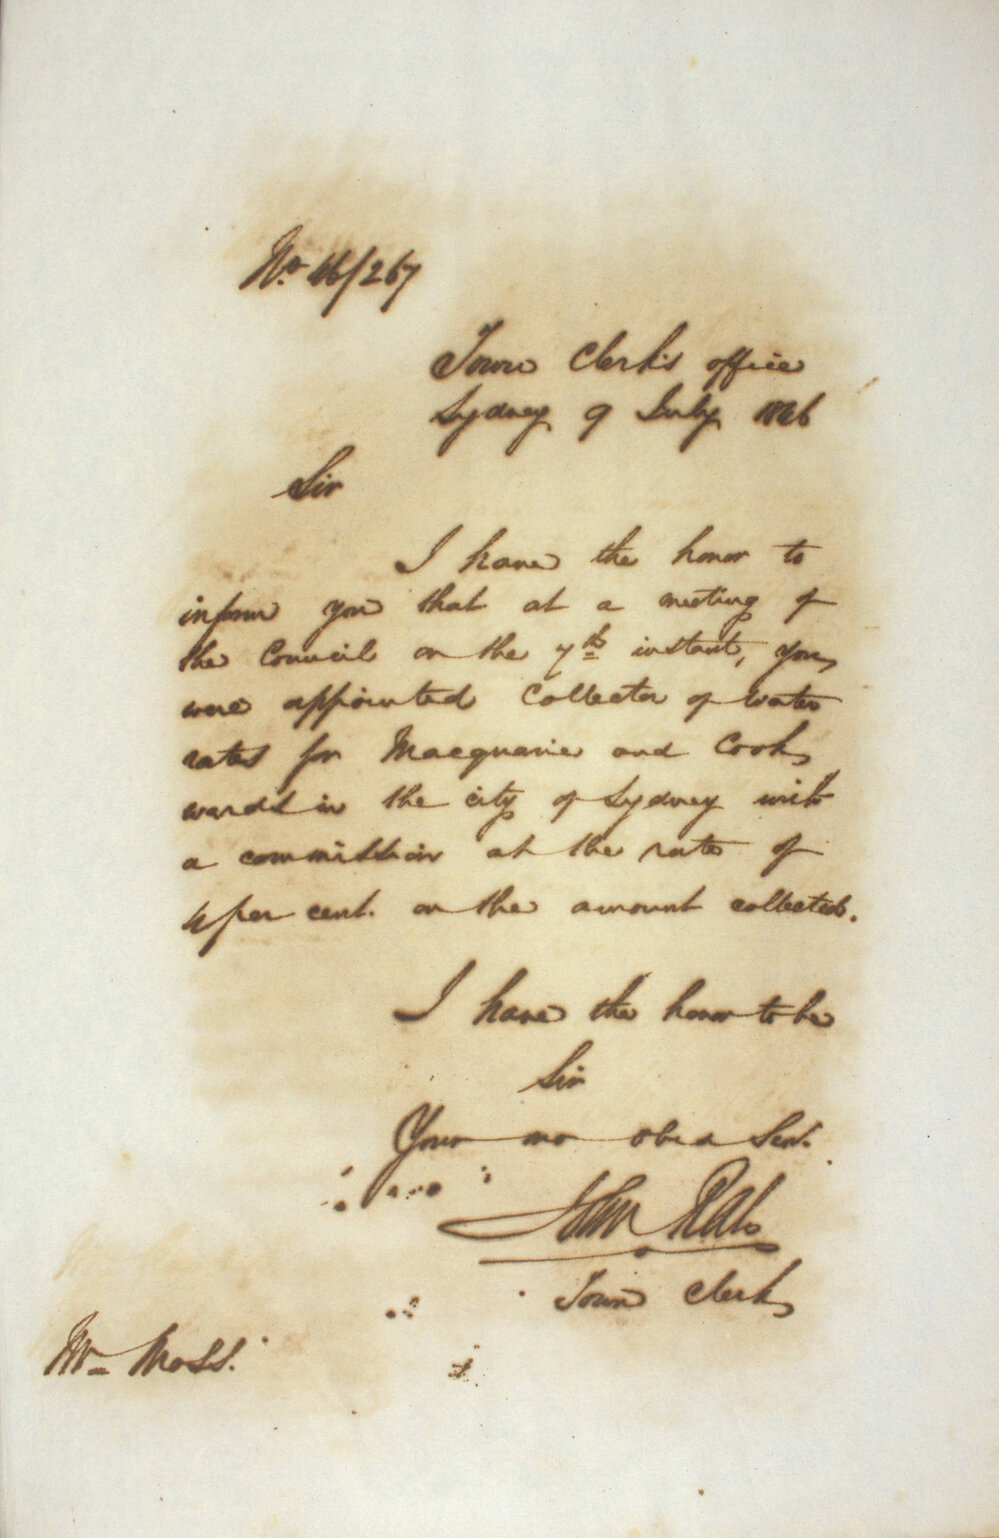 No. 46/267
Town Clerk's office
Sydney 9 July 1846
Sir
I have the honor to
inform you that at a meeting of
the Council on the 7th instant, you
were appointed Collector of Water
rates for Macquarie and Cook
wards in the city of Sydney with
a commission at the rate of
4 per cent. on the amount collected.
I have the honor to be
Sir
Your mo obed Serv.
Town Clerk
Mr Moss.